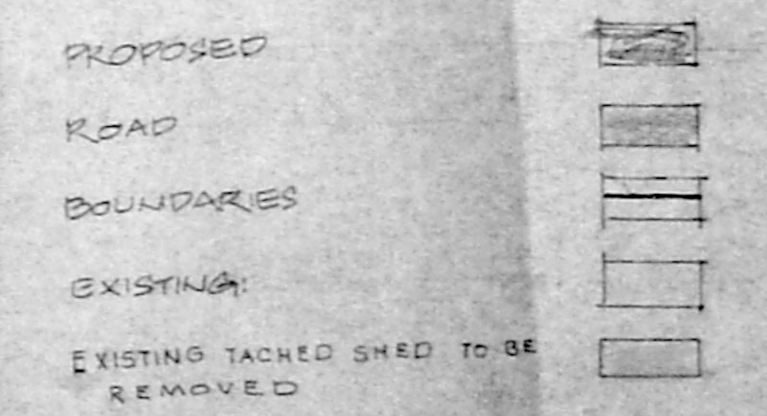 PROPOSED
ROAD
BOUNDARIES
EXISTING:
EXISTING TACHED SHED TO BE
REMOVED